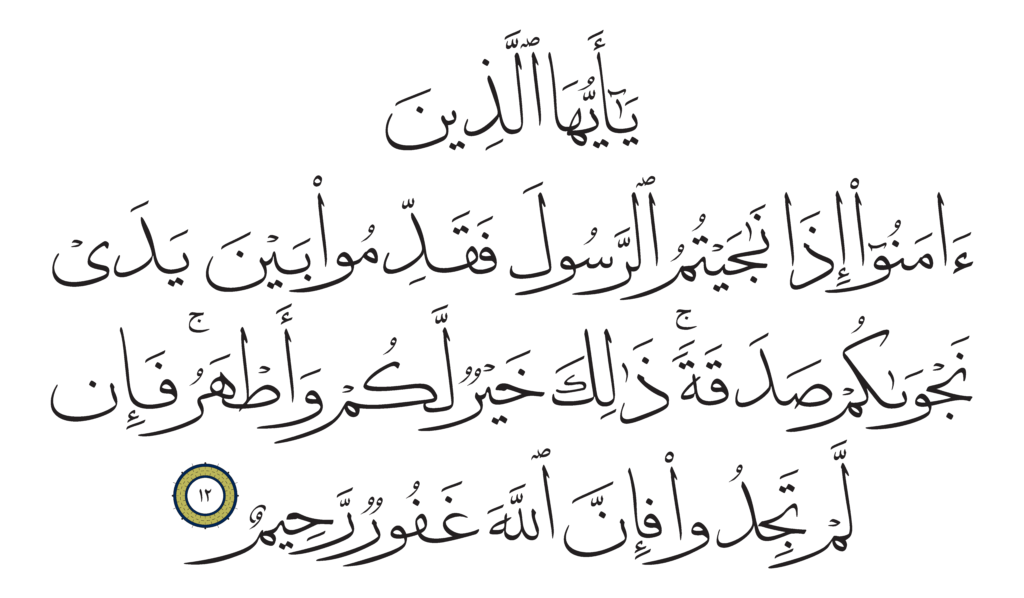 يَـٰٓأَيُّهَا ٱلَّذِينَ
ءَامَنُوٓا۟ إِذَا نَـٰجَيْتُمُ ٱلرَّسُولَ فَقَدِّمُوا۟ بَيْنَ يَدَىْ
نَجْوَىٰكُمْ صَدَقَةً ۚ ذَٰلِكَ خَيْرٌ لَّكُمْ وَأَطْهَرُ ۚ فَإِن
لَّمْ تَجِدُوا۟ فَإِنَّ ٱللَّهَ غَفُورٌ رَّحِيمٌ ١٢